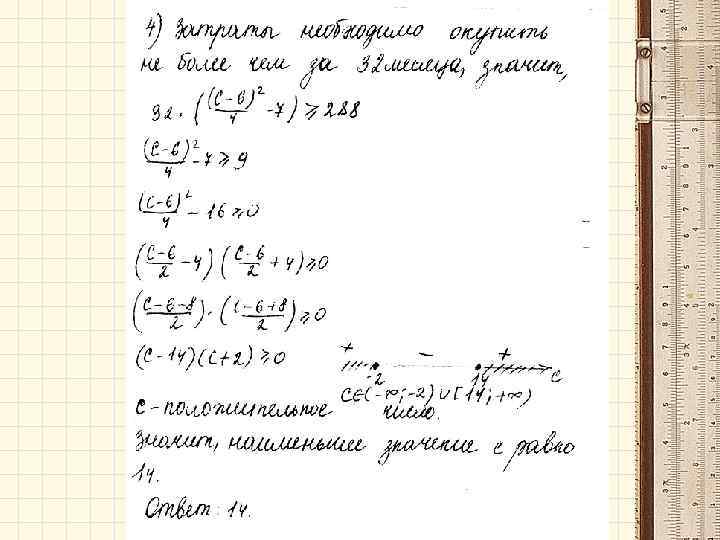 4) Затраты необходимо окупить
не более чем за 32 месяца, значит,
32 · ((c-6)²/4 - 7) ≥ 288
(c-6)²/4 - 7 ≥ 9
(c-6)²/4 - 16 ≥ 0
(c-6/2 - 4) (c-6/2 + 4) ≥ 0
(c-6-8/2) · (c-6+8/2) ≥ 0
(c-14)(c+2) ≥ 0
+ - +
-2 14 c
c∈(-∞; -2) ∪ [14; +∞)
c - положительное число.
Значит, наименьшее значение c равно
14.
Ответ: 14.